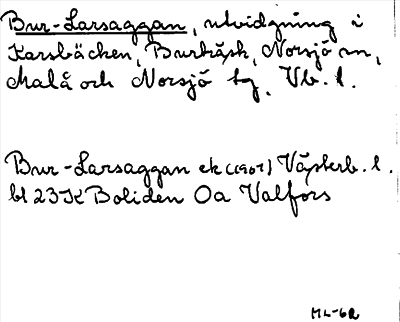 Bur-Larsaggan, utvidgning i
Karsbäcken, Burträsk, Norsjö sn,
Malå och Norsjö tg. Vb. l.
Bur-Larsaggan ek (1967) Västerb. l.
bl 23K Boliden Oa Valfors
ML-62